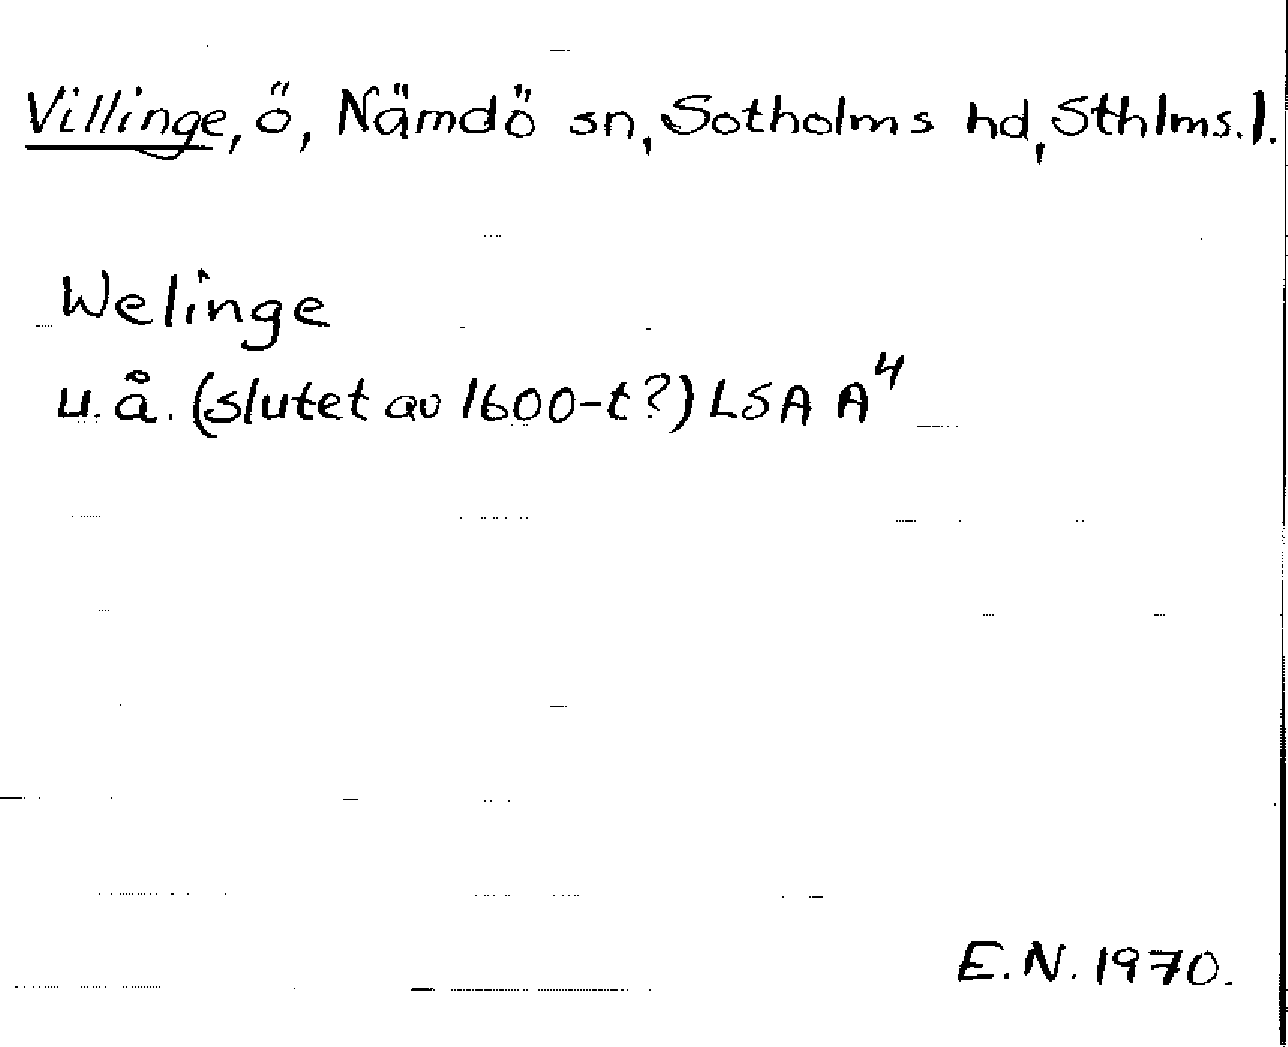 Villinge, ö, Nämdö sn, Sotholms hd, Sthlms. l.
Welinge
u. å. (slutet av 1600-t?) LSA A⁴
E.N. 1970.